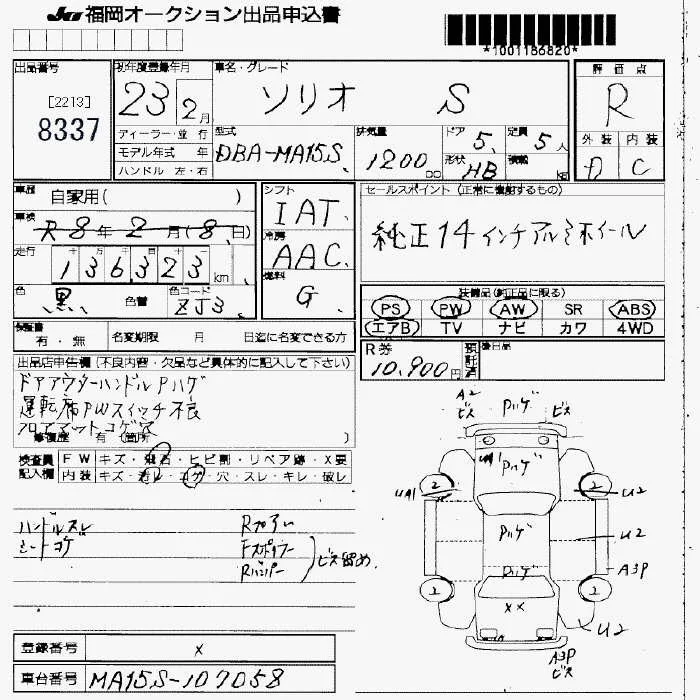 JU 福岡オークション出品申込書
*1001186820*
出品番号
[2213]
8337
初年度登録年月
23 2月
車名・グレード
ソリオ S
評価点
R
ディーラー・並行
モデル年式 年
ハンドル 左・右
型式
DBA-MA15S
排気量
1200 cc
ドア 5
形状 HB
定員 5人
積載 kg
外装 内装
D C
車歴
自家用( )
車検
R8年2月(8日)
走行
136,323 km
色
黒
色替
色コード
ZJ3
シフト
IAT
冷房
AAC
燃料
G
セールスポイント (正常に機能するもの)
純正14インチアルミホイール
装備品(純正品に限る)
PS PW AW SR ABS
エアB TV ナビ カワ 4WD
検査書
有・無
名変期限 月 日迄に名変できる方
R券
10,900円
預託済
後日品
出品店申告欄 (不良内容・欠品など具体的に記入して下さい)
ドアアウターハンドルPハゲ
運転席PWスイッチ不良
フロアマットコゲ穴
修復歴 有 (箇所 )
検査員記入欄
FW キズ・飛石・ヒビ割・リペア跡・X要
内装 キズ・汚レ・コゲ・穴・スレ・キレ・破レ
ハンドルスレ
シートコゲ
Rワイパー
Fスポイラー
Rバンパー
ビス留め
A2
ビス
Pハゲ
ビス
UA1
Pハゲ
2
2
UA1
U2
Pハゲ
U2
Pハゲ
A3P
2
2
XX
U2
A3P
ビス
登録番号
x
車台番号
MA15S-107058